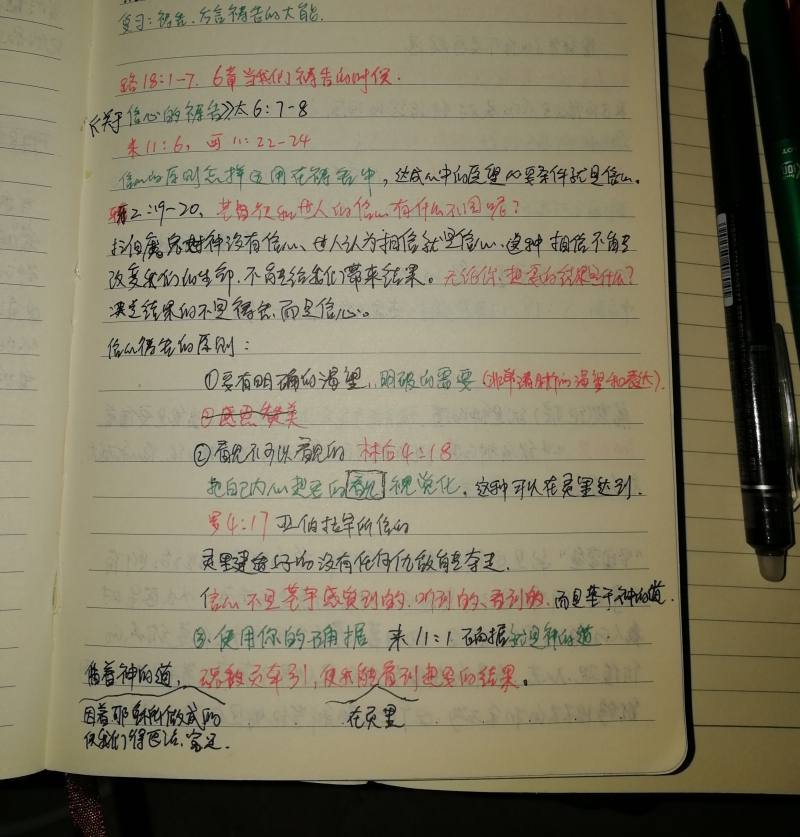 复习：祷告，方言祷告的大能。
路18:1-7. 6章当我们祷告的时候.
《关于信心的祷告》太6:7-8
来11:6, 可11:22-24
信心的原则怎样运用在祷告中，达成心中的愿望必要条件就是信心。
雅2:19-20、基督教和世人的信心有什么不同呢？
拉但魔鬼对神没有信心、世人认为相信就是信心、这种相信不能
改变我们的生命，不能给我们带来结果。无论你想要的结果是什么？
决定结果的不是祷告，而是信心。
信心祷告的原则：
①要有明确的渴望，明确的需要（非常清晰的渴望和表达）.
②感恩赞美
②看见不可以看见的 林后4:18
把自己内心想要的看见视觉化，这种可以在灵里达到.
罗4:17 亚伯拉罕所信的
灵里建造好的没有任何仇敌能夺走.
信心不是基于感觉到的、听到的、看到的，而是基于神的道.
③.使用你的确据 来11:1 确据就是神的道
借着神的道，圣灵牵引，使我能看到想要的结果。
因着耶稣所做成的 在灵里
使我们得医治、富足.